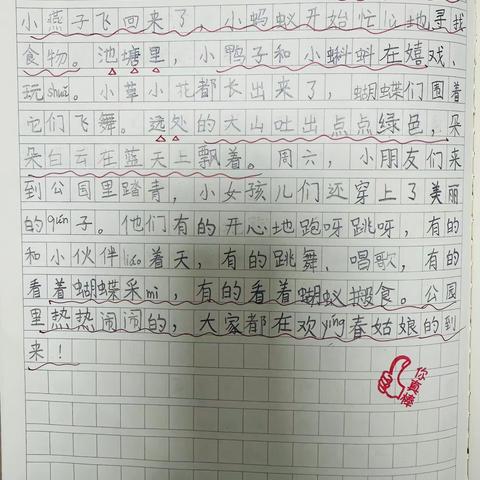 小燕子飞回来了，小蚂蚁开始忙忙地寻找
食物。池塘里，小鸭子和小蝌蚪在嬉戏、
玩shuǐ。小草小花都长出来了，蝴蝶们围着
它们飞舞。远处的大山吐出点点绿色，朵
朵白云在蓝天上飘着。周六，小朋友们来
到公园里踏青，小女孩儿们还穿上了美丽
的qún子。他们有的开心地跑呀跳呀，有的
和小伙伴liáo着天，有的跳舞、唱歌，有的
看着蝴蝶采mì，有的看着蚂蚁搬食。公园
里热热闹闹的，大家都在欢yíng春姑娘的到
来！
你真棒